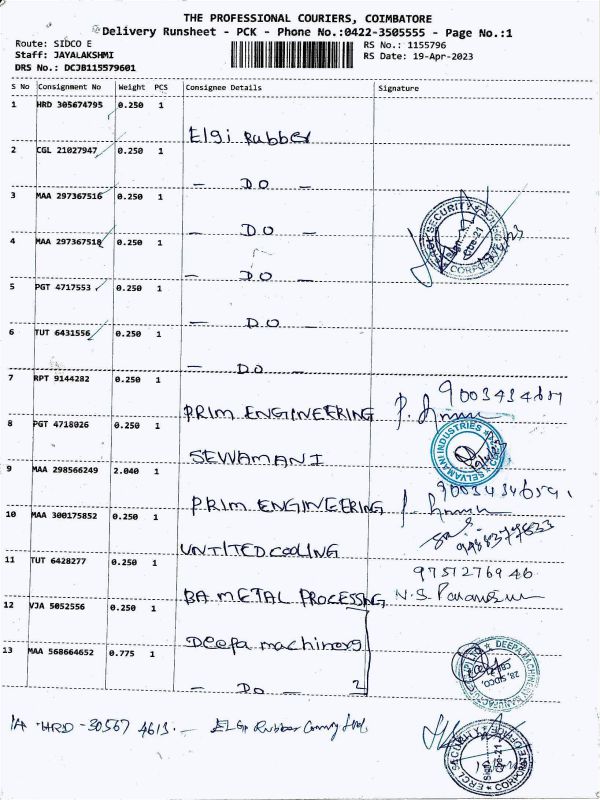 THE PROFESSIONAL COURIERS, COIMBATORE
Delivery Runsheet - PCK - Phone No.:0422-3505555 - Page No.:1
Route: SIDCO E
Staff: JAYALAKSHMI
DRS No.: DCJB115579601
RS No.: 1155796
RS Date: 19-Apr-2023
S No Consignment No Weight PCS Consignee Details Signature
1 HRD 305674795 0.250 1 Elgi Rubber
2 CGL 21027947 0.250 1 — DO —
3 MAA 297367516 0.250 1 — DO —
4 MAA 297367518 0.250 1 — DO —
5 PGT 4717553 0.250 1 — DO —
6 TUT 6431556 0.250 1 — DO —
7 RPT 9144282 0.250 1 PRIM ENGINEERING
8 PGT 4718026 0.250 1 SEWAMANI
SELVAMANI INDUSTRIES
9 MAA 298566249 2.040 1 PRIM ENGINEERING
10 MAA 300175852 0.250 1 UNTITED COOLING
11 TUT 6428277 0.250 1 BA METAL PROCESSING
9751276946
12 VJA 5052556 0.250 1 Deepa machinery
13 MAA 568664652 0.775 1 — DO — 2
HRD -30567 4613. — ELGi Rubber